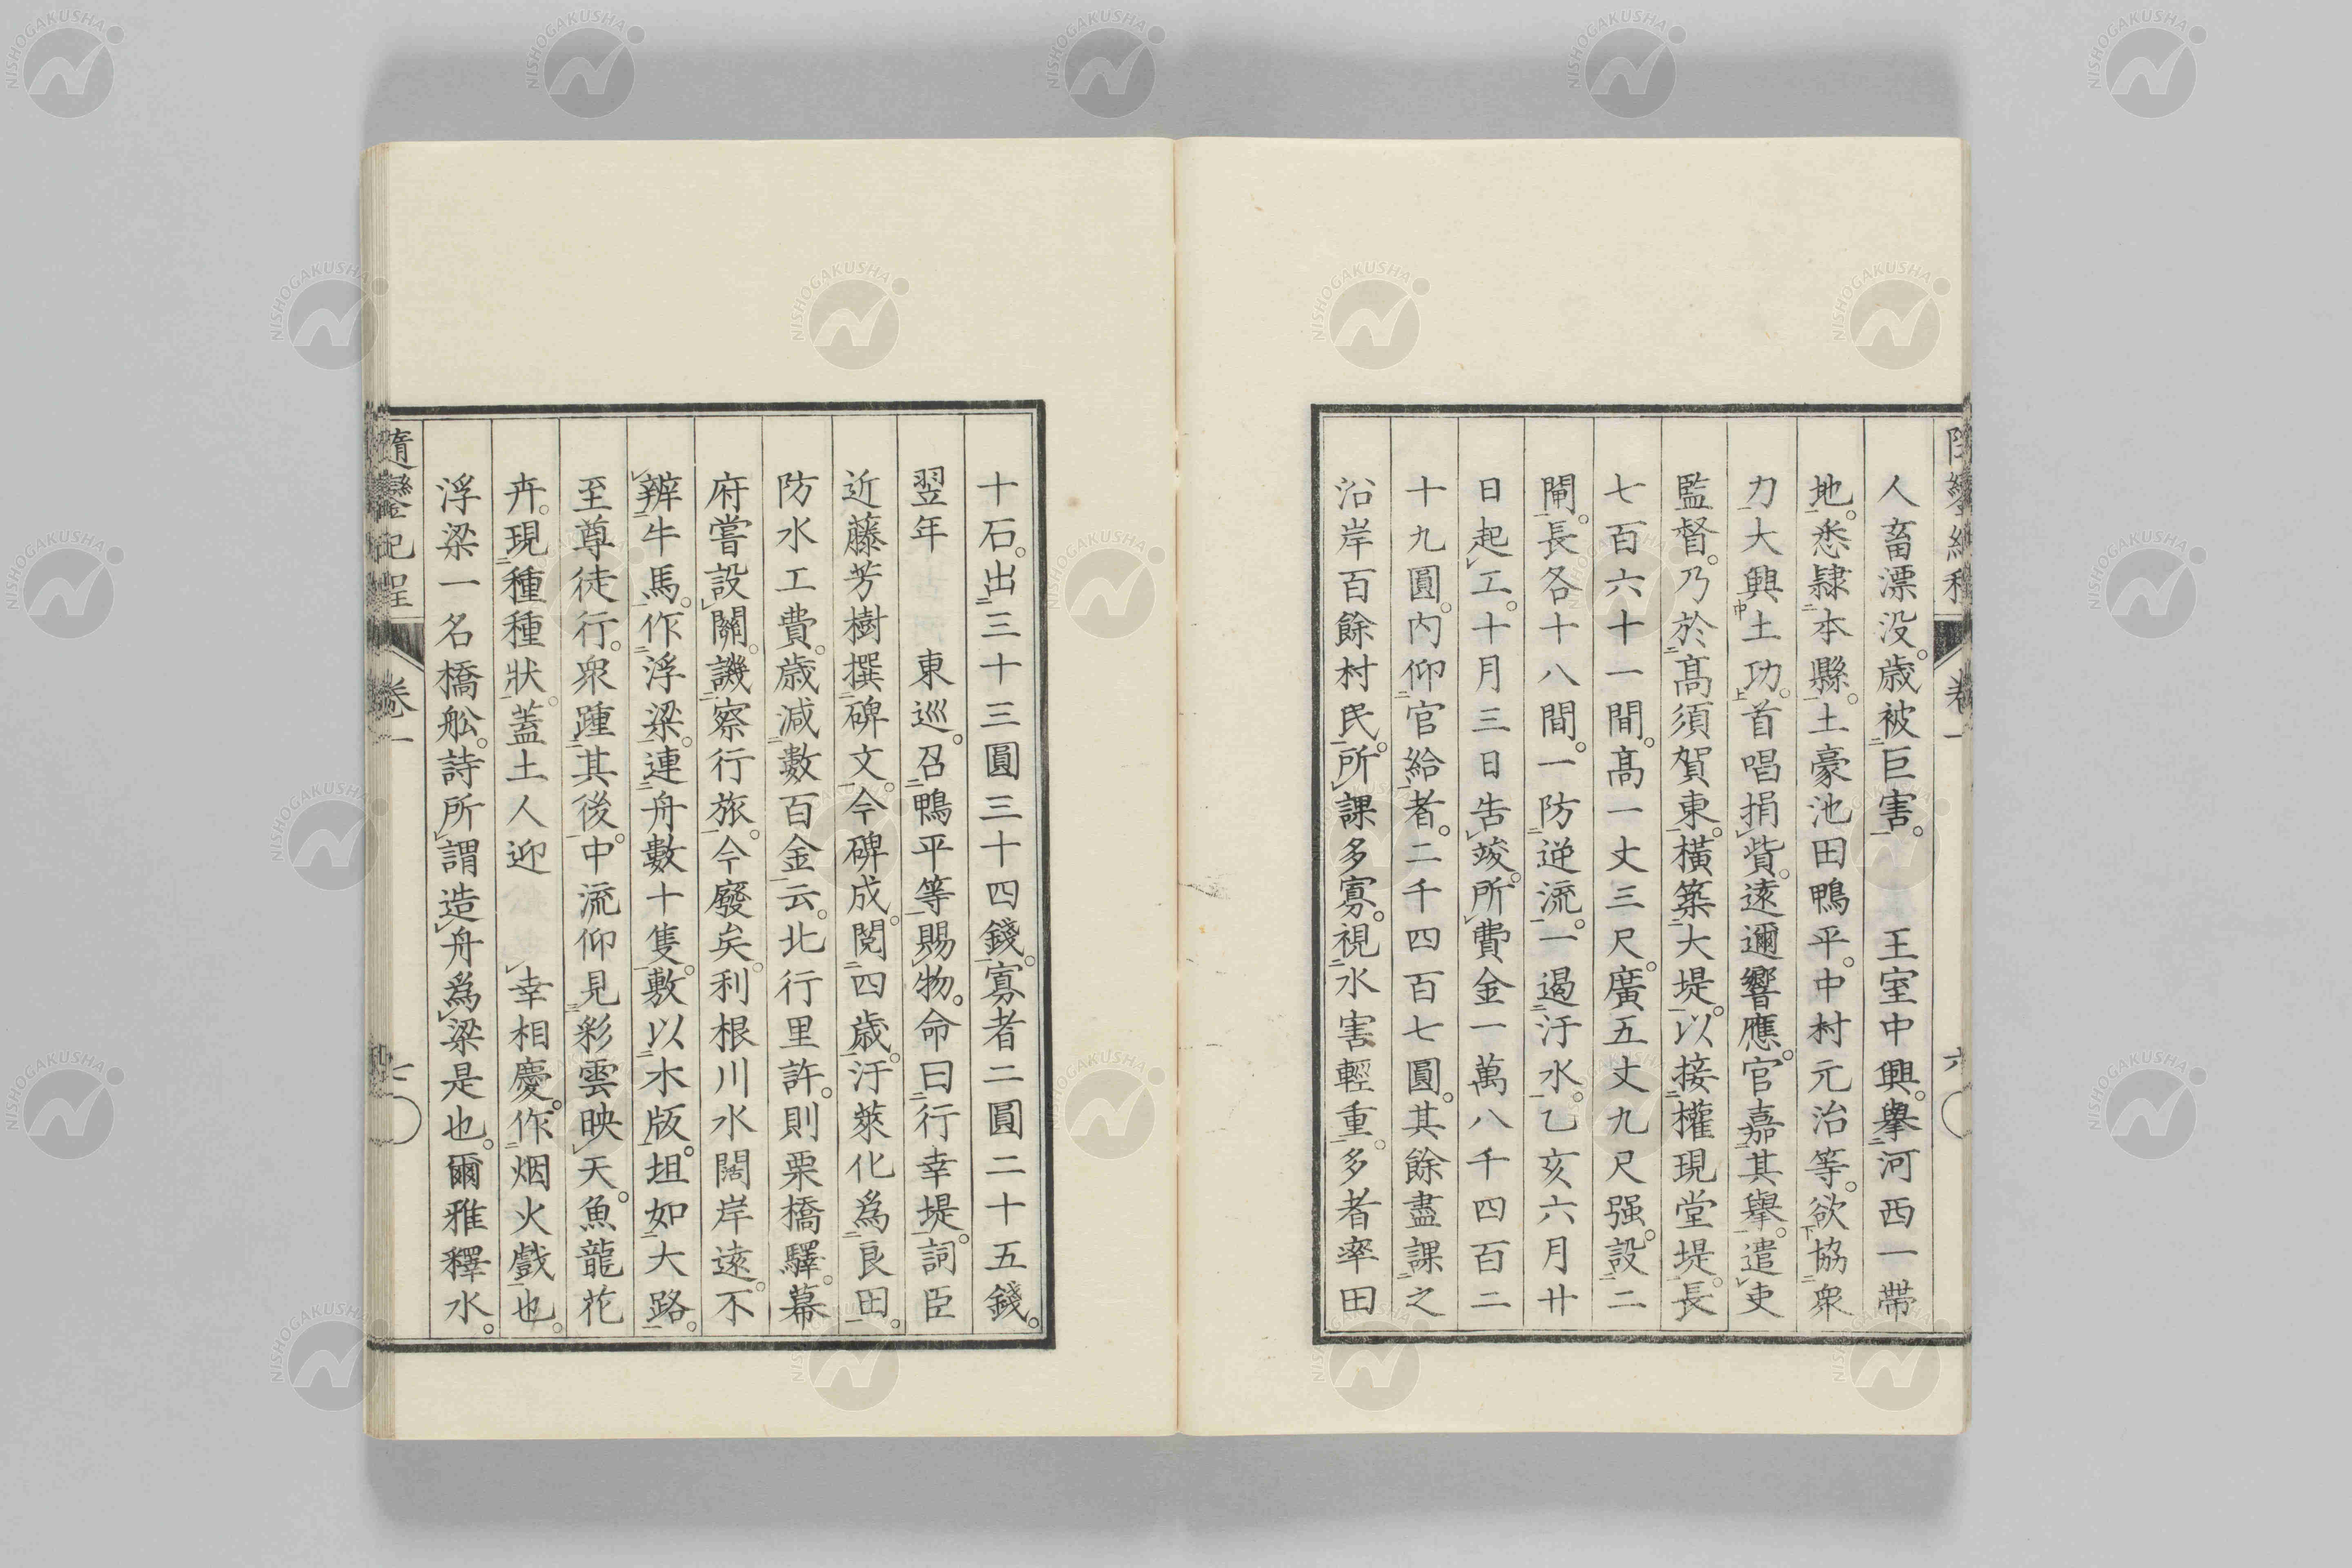 人畜漂没。歳被巨害。　王室中興。擧河西一帶
地。悉隷本縣。土豪池田鴨平。中村元治等。欲協衆
力大興土功。首唱捐貲。遠邇響應。官嘉其擧。遣吏
監督。乃於髙須賀東。橫築大堤。以接權現堂堤。長
七百六十一間。髙一丈三尺。廣五丈九尺强。設二
閘。長各十八間。一防逆流。一遏汙水。乙亥六月廿
日起工。十月三日告竣。所費金一萬八千四百二
十九圓。内仰官給者。二千四百七圓。其餘盡課之
沿岸百餘村民。所課多寡。視水害輕重。多者率田
十石。出三十三圓三十四錢。寡者二圓二十五錢。
翌年　東巡。召鴨平等賜物。命曰行幸堤。詞臣
近藤芳樹撰碑文。今碑成。閲四歳。汙萊化爲良田。
防水工費。歳減數百金云。北行里許。則栗橋驛。幕
府嘗設關。譏察行旅。今廢矣。利根川水闊岸遠。不
辨牛馬。作浮梁。連舟數十隻。敷以木版。坦如大路。
至尊徒行。衆踵其後。中流仰見彩雲映天。魚龍花
卉。現種種狀。蓋土人迎　幸相慶。作烟火戲也。
浮梁一名橋舩。詩所謂造舟爲梁是也。爾雅釋水。
隨鑾紀程
卷一
六
隨鑾紀程
卷一
七
NISHOGAKUSHA